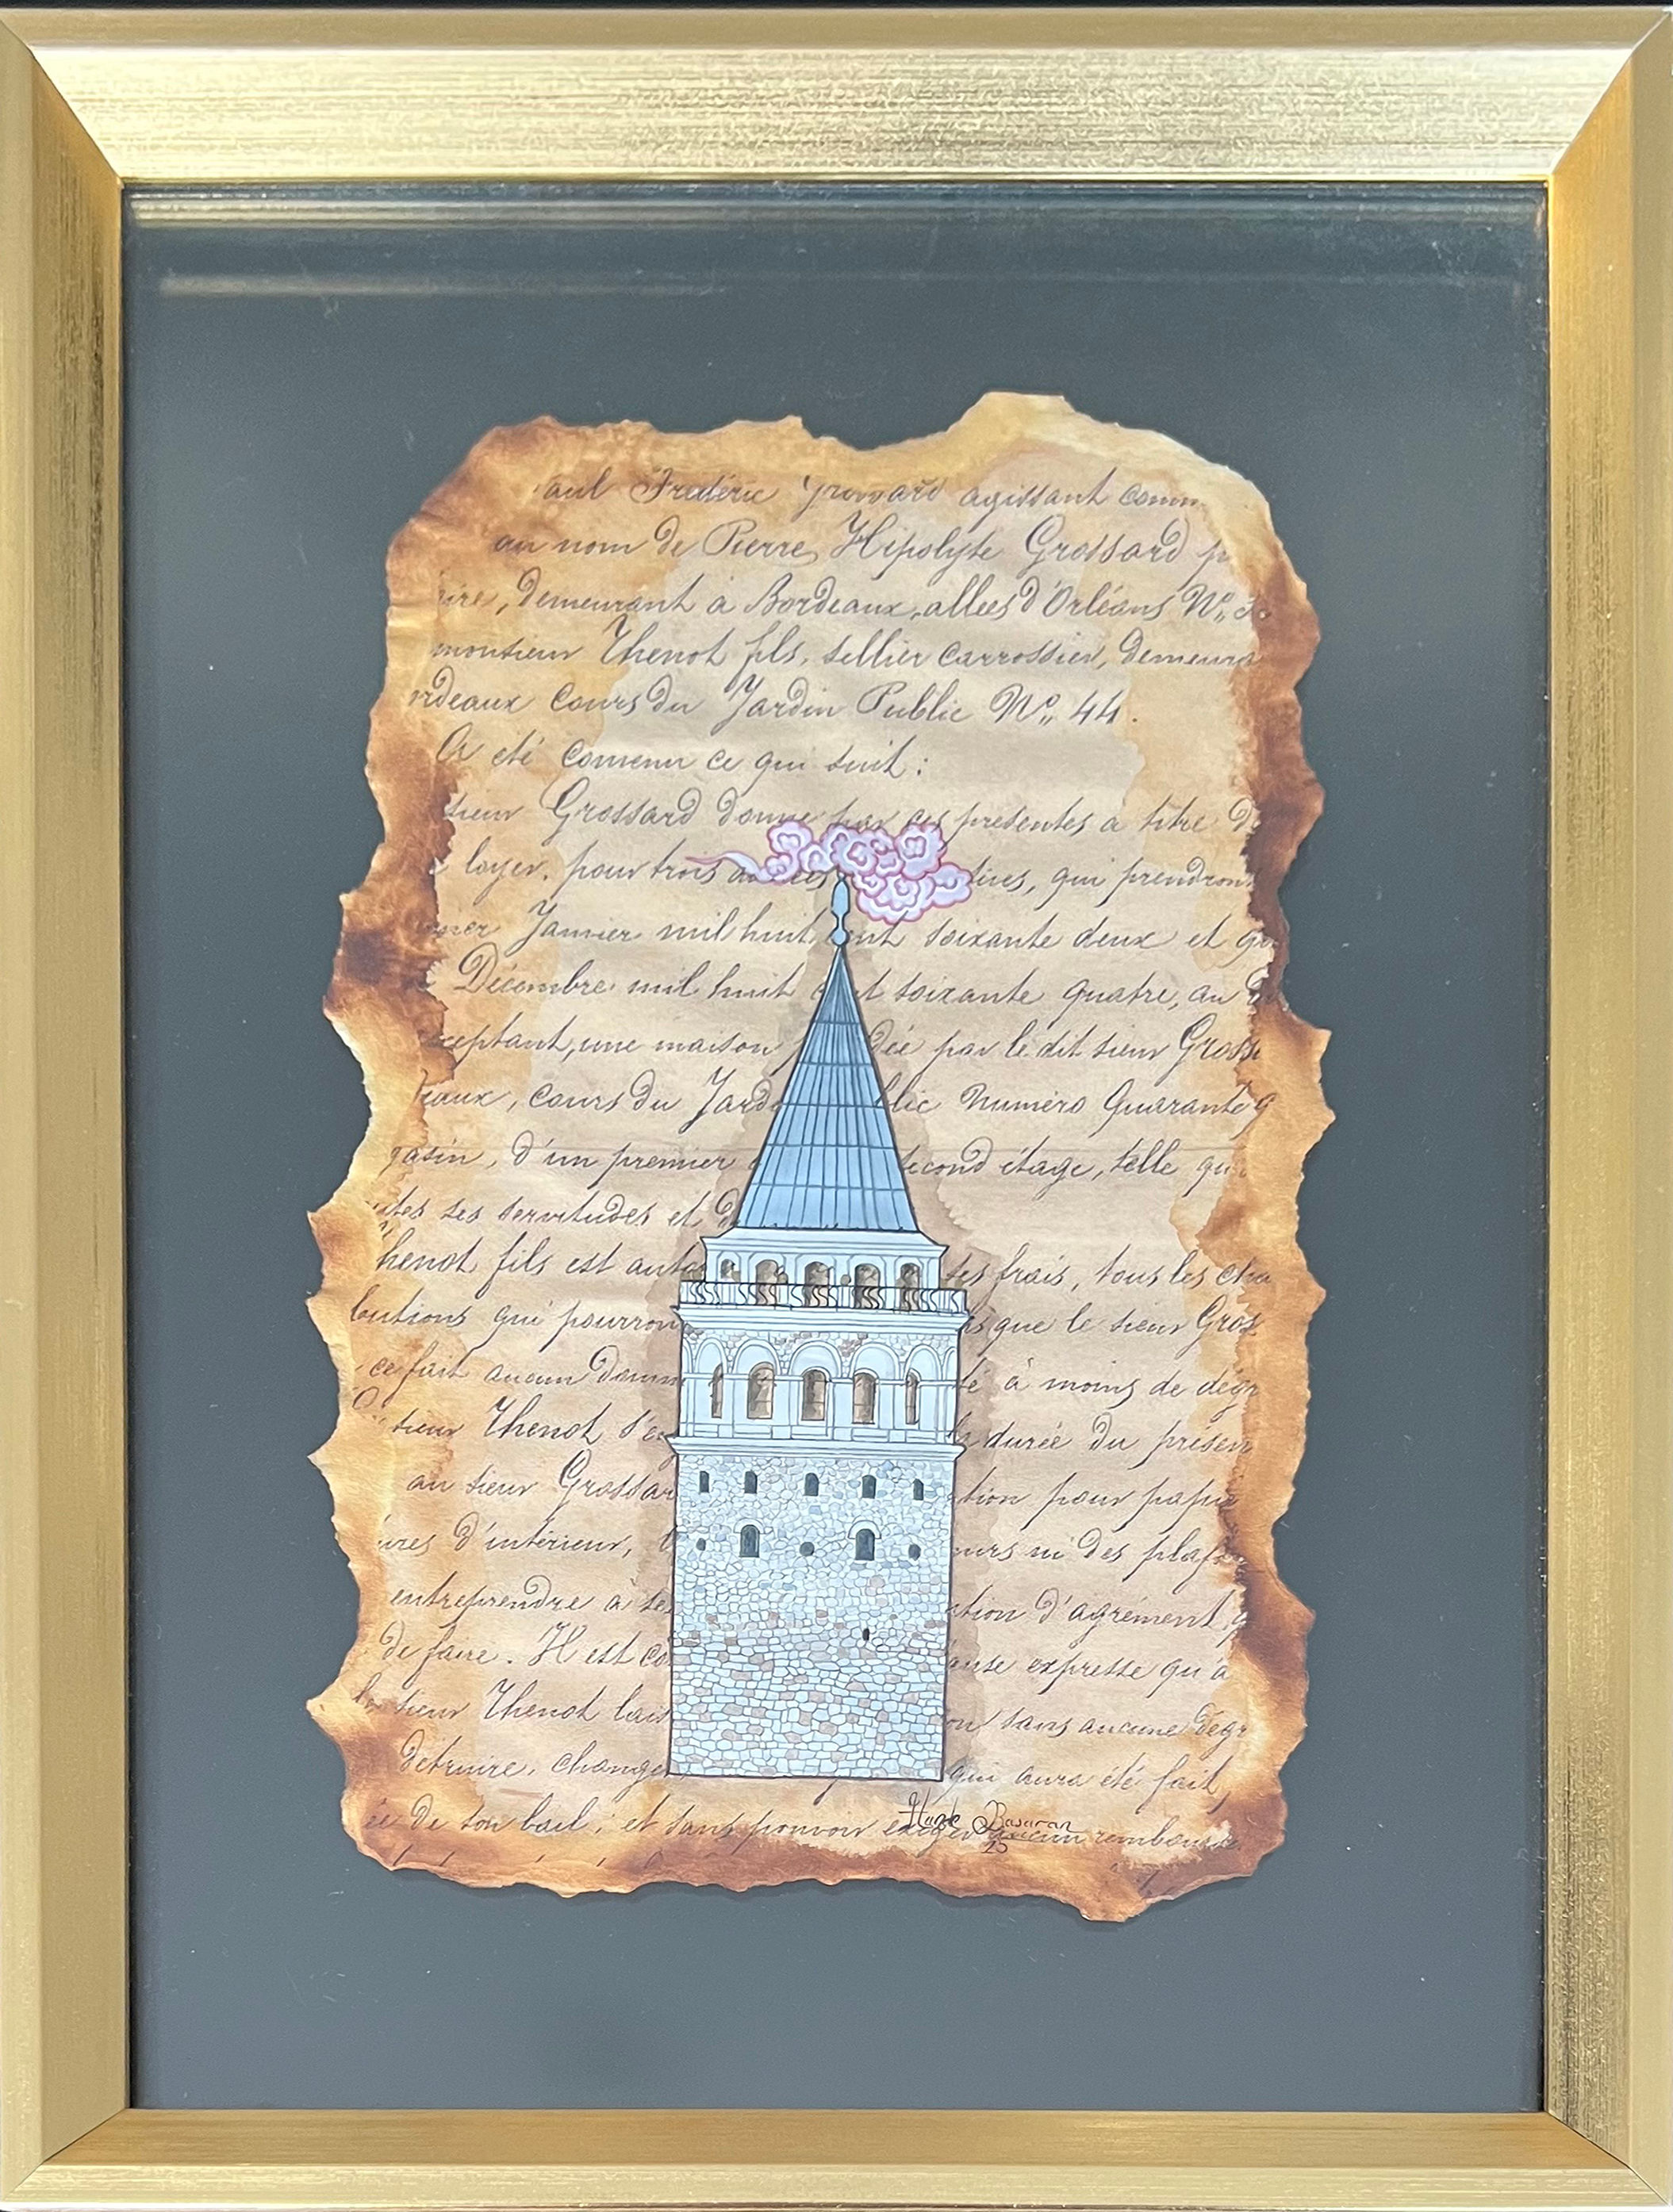 Frédéric agissant comm
au nom de Pierre Hipolyte Grossard p
ire, demeurant à Bordeaux, allées d'Orléans Nº 3
monsieur Thenot fils, sellier carrossier, demeura
rdeaux cours du Jardin Public Nº 44.
A été convenu ce qui suit :
sieur Grossard donne par ces présentes à titre d
e loyer, pour trois qui prendron
Janvier mil huit cent soixante deux et
Décembre mil huit t soixante quatre, au
ceptant, une maison dée par le dit sieur Gross
eaux, cours du Jard blic Numéro Quarante q
gasin, d'un premier second étage, telle qu
utes ses servitudes et d
Thenot fils est auto ses frais, tous les cha
butions qui pourron rs que le sieur Gros
ce fait aucun domm té à moins de dégr
sieur Thenot s'eng la durée du présen
au sieur Grossar tion pour papie
ures d'intérieur, murs ni des plafo
entreprendre à ses ation d'agrément, q
de faire. Il est co ause expresse qu'à
le sieur Thenot lais on sans aucune dégr
détruire, change qui aura été fait,
ée de son bail ; et sans pouvoir exiger aucun rembourse
Hande Başaran
23